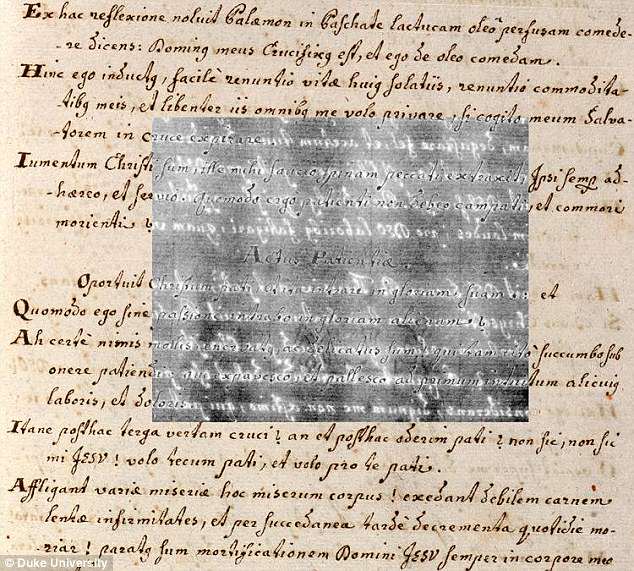 Ex hac reflexione noluit Palæmon in Paschate lactucam oleo perfusam comede-
re dicens: Dominq meus Crucifixq est, et ego de oleo comedam.
Hinc ego inductq, facilè renuntio vitæ huiq solatiis, renuntio commodita-
tibq meis, et libenter iis omnibq me volo privare, si cogito meum Salva-
torem in cruce expirare
Iumentum Christi sum, ille mihi saucio spinam peccati extraxit, Ipsi semp ad-
hæreo, et quomodo ergo patienti non debeo compati, et commori
morienti
Actus Patientiæ.
Oportuit Christum pati, et intrare in gloriam suam: et
Quomodo ego sine passione gloriam
Ah certè nimis mollis succumbo sub
onere patiendi, qui expavesco et pallesco ad primum alicuiq
laboris, et doloris
Itane posthac terga vertam cruci? an et posthac oderim pati? non sic, non sic
mi JESU! volo tecum pati, et volo pro te pati.
Affligant variæ miseriæ hoc miserum corpus! exedant debilem carnem
lentæ infirmitates, et per succedanea tardè decrementa quotidie mo-
riar! paratq sum mortificationem Domini JESU semper in corpore meo
© Duke University